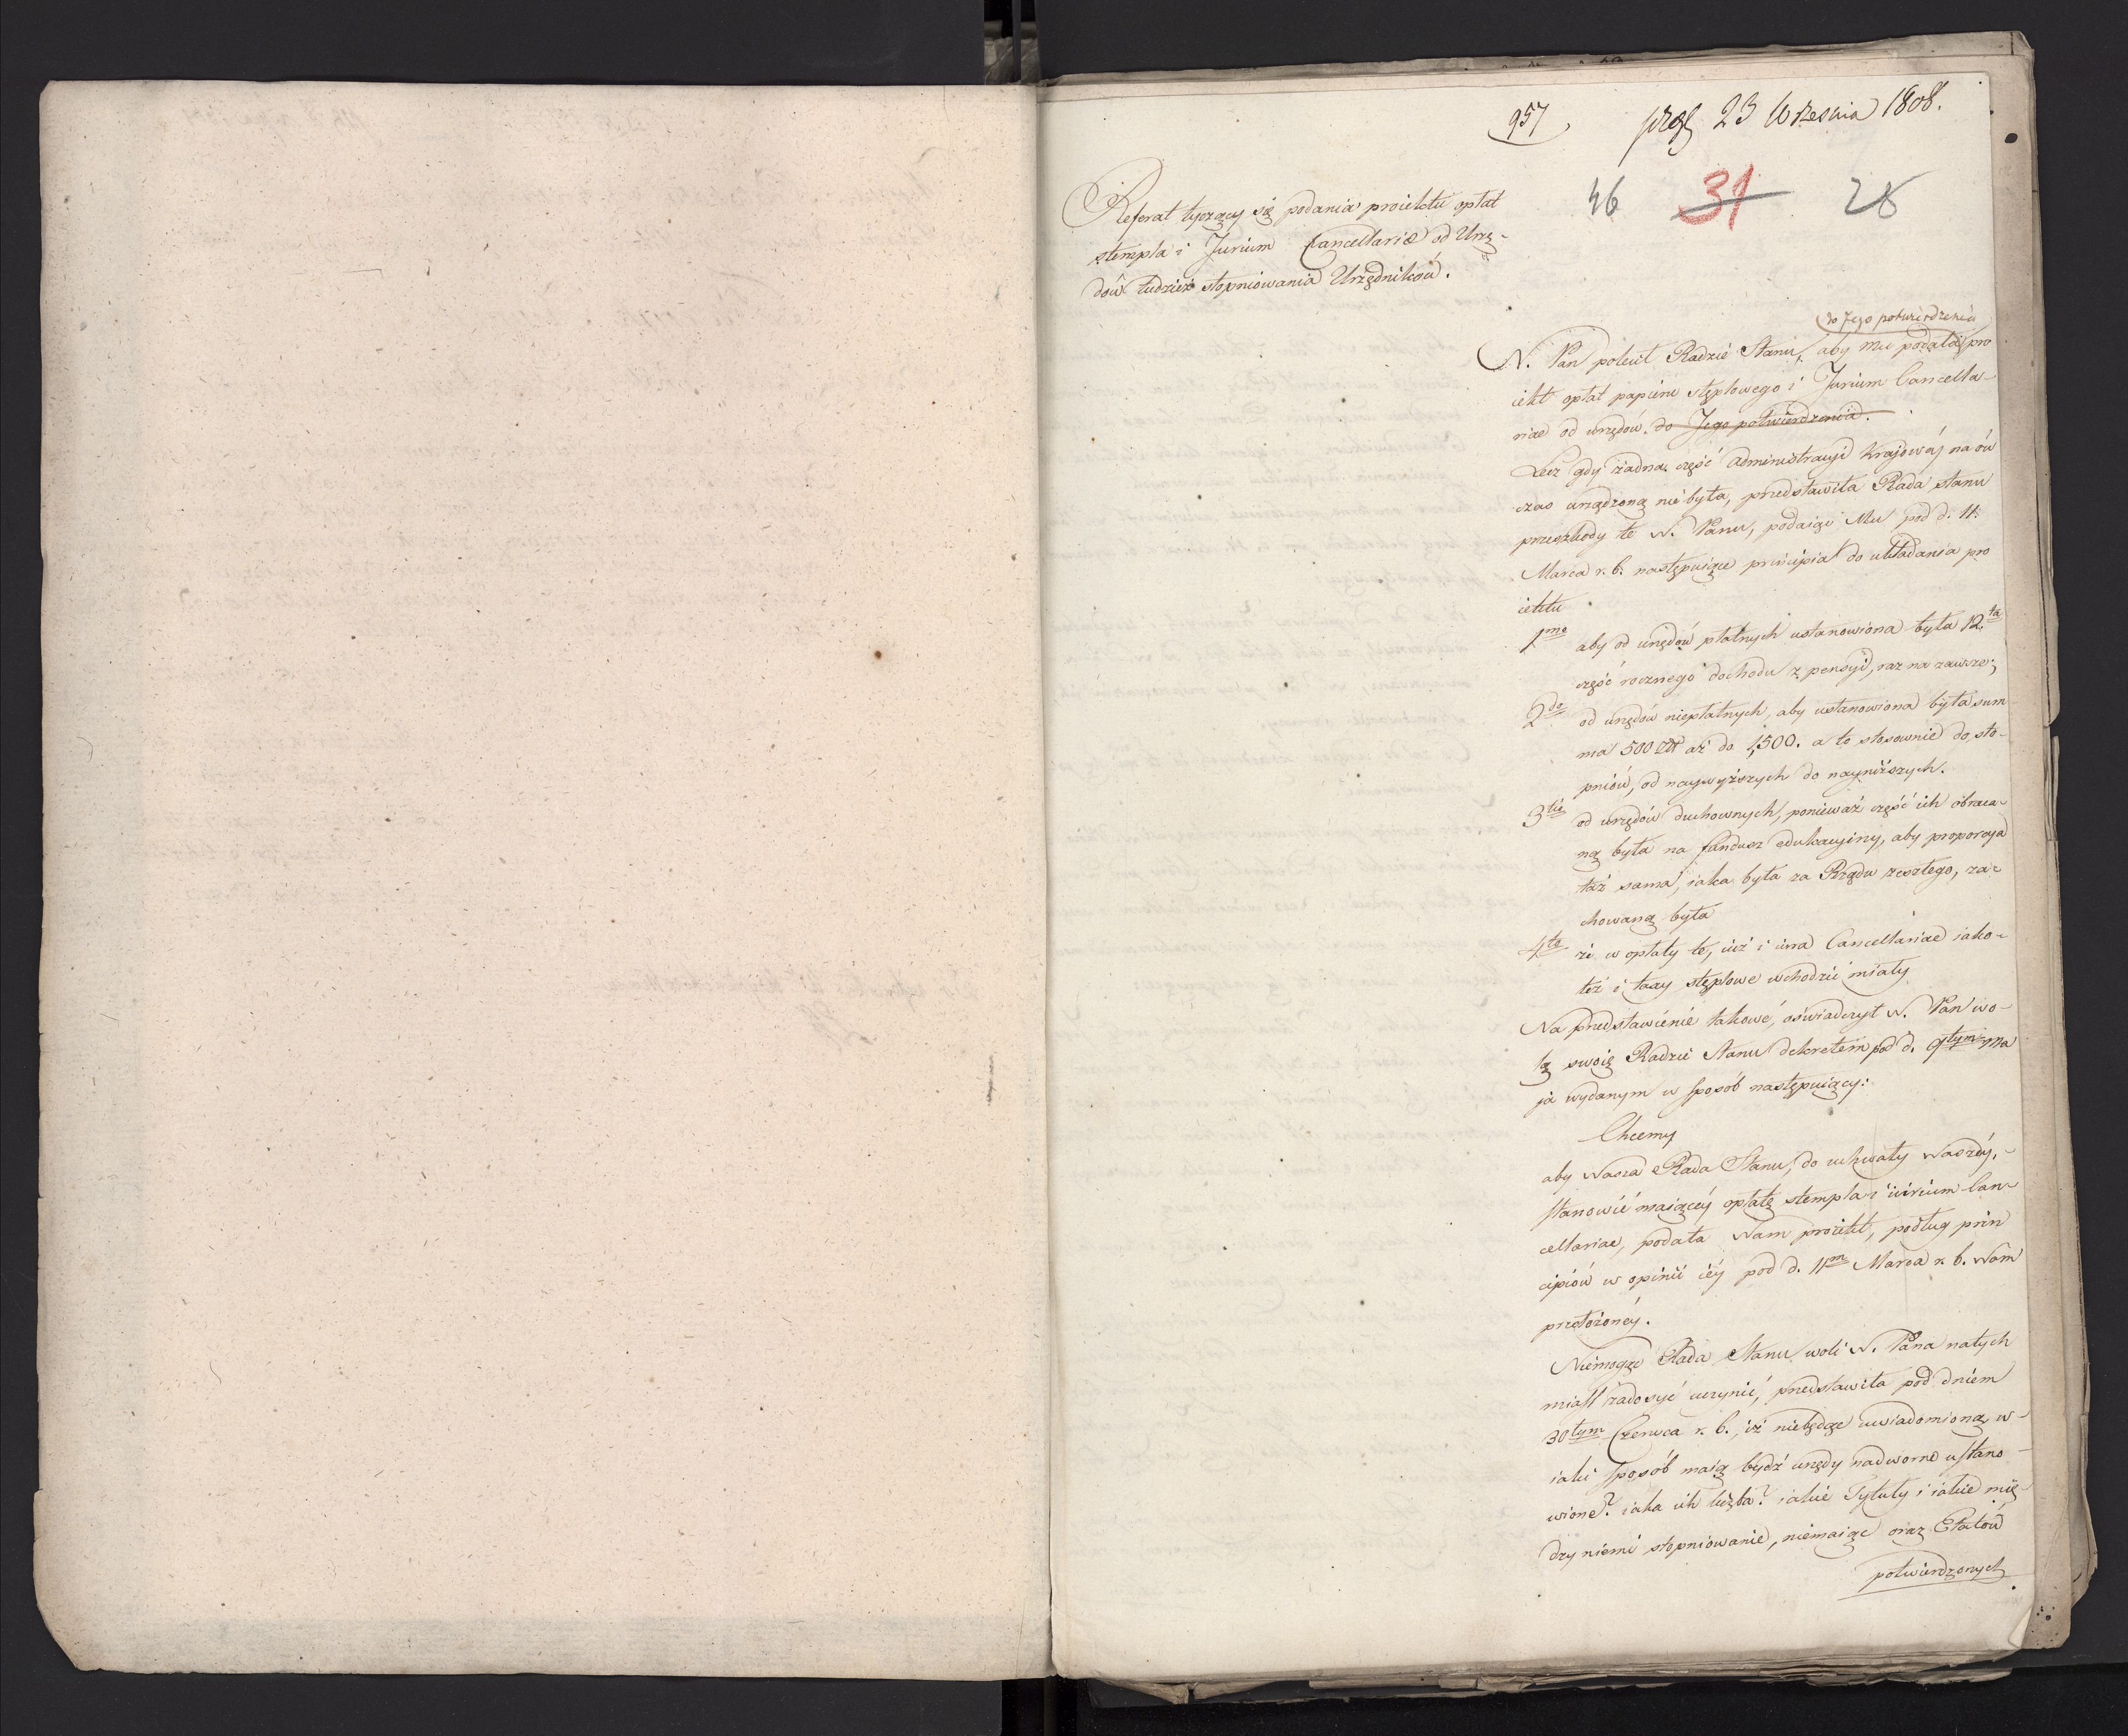 957
23 Września 1808.
46 31 28
Referat tyczący się podania proiektu opłat
stempla i Jurium Cancellariæ od Urzę-
dów tudzież stopniowania Urzędników.
do Jego potwierdzenia
N. Pan polecił Radzie Stanu, aby mu podała pro
iekt opłat papieru stęplowego i Jurium Cancella-
riae od urzędów. do Jego potwierdzenia.
Lecz gdy żadna część administracyi krajowéj na ów
czas urządzoną nie była, przedstawiła Rada stanu
przeszkody te N. Panu, podaiąc Mu pod d. 11.
Marca r. b. następuiące principia do układania pro
iektu
1mo aby od urzędów płatnych ustanowiona była 12.ta
część rocznego dochodu z pensyi, raz na zawsze;
2do od urzędów niepłatnych, aby ustanowiona była sum
ma 500 zł aż do 1,500. a to stosownie do sto-
pniów, od naywyższych do nayniższych.
3tio od urzędów duchownych, ponieważ część ich obraca-
ną była na fundusz edukacyiny, aby proporcya
taż sama, iaka była za Rządu zeszłego, za-
chowaną była
4to że w opłaty te, iuż i iura Cancellariae iako-
też i taxy stęplowe wchodzić miały
Na przedstawienie takowe, oświadczył N. Pan wo-
lą swoię Radzie Stanu dekretem pod d. 9tym Ma
ja wydanym w sposób następuiący:
Chcemy
aby Nasza Rada Stanu, do uchwały Naszéy,
stanowić maiącéy opłatę stempla i iurium Can-
cellariae, podała Nam proiekt, podług prin
cipiów w opinii iéy pod d. 11m Marca r. b. Nam
przełożonéy.
Niemogąc Rada Stanu woli N. Pana natych
miast zadosyć uczynić, przedstawiła pod dniem
30tym Czerwca r. b., iż niebędąc uwiadomioną w-
iaki sposób maią bydź urzędy nadworne ustano-
wione? iaka ich liczba? iakie Tytuły i iakie mię-
dzy niemi stopniowanie, niemaiąc oraz Etatów
potwierdzonych